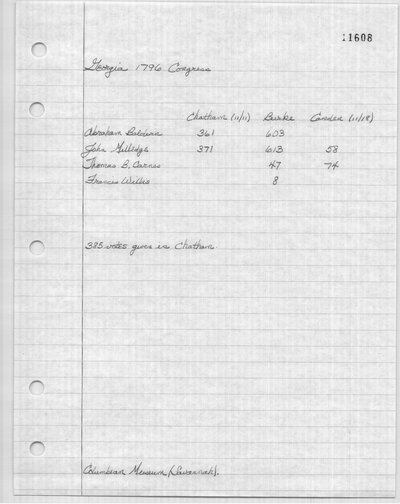 11608
Georgia 1796 Congress
Chatham (11/11) Burke Camden (11/18)
Abraham Baldwin 361 603
John Milledge 371 613 58
Thomas B. Carnes 47 74
Francis Willis 8
385 votes given in Chatham
Columbian Museum (Savannah).